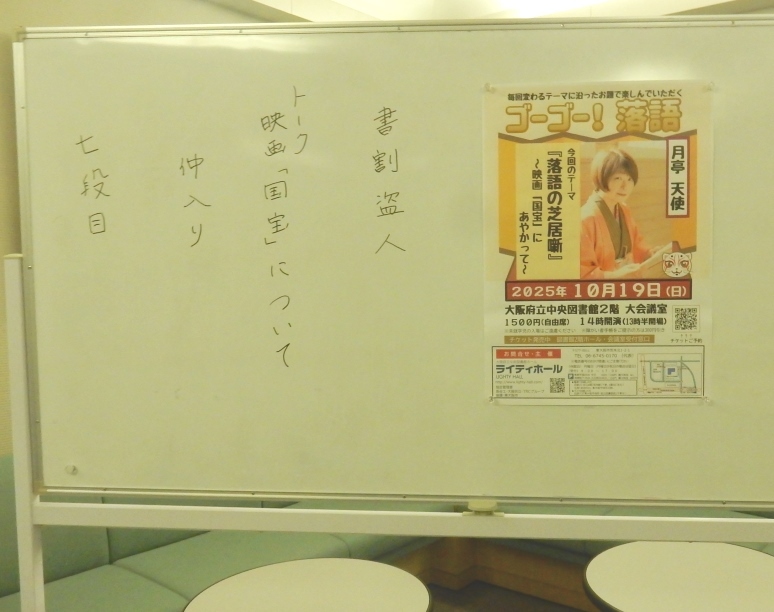 書割盗人
トーク
映画「国宝」について
仲入り
七段目
毎回変わるテーマに沿ったお題で楽しんでいただく
ゴーゴー！落語
月亭 天使
今回のテーマ
『落語の芝居噺』
～映画「国宝」に
あやかって～
2025年10月19日(日)
大阪府立中央図書館2階 大会議室
1500円(自由席) 14時開演(13時半開場)
チケットご予約
お問合せ・主催
ライティホール